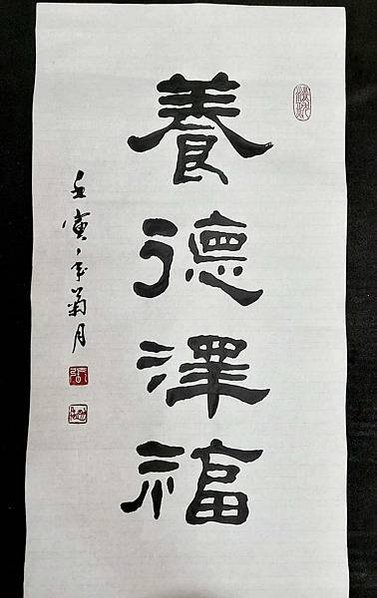 養德澤福
壬寅年菊月